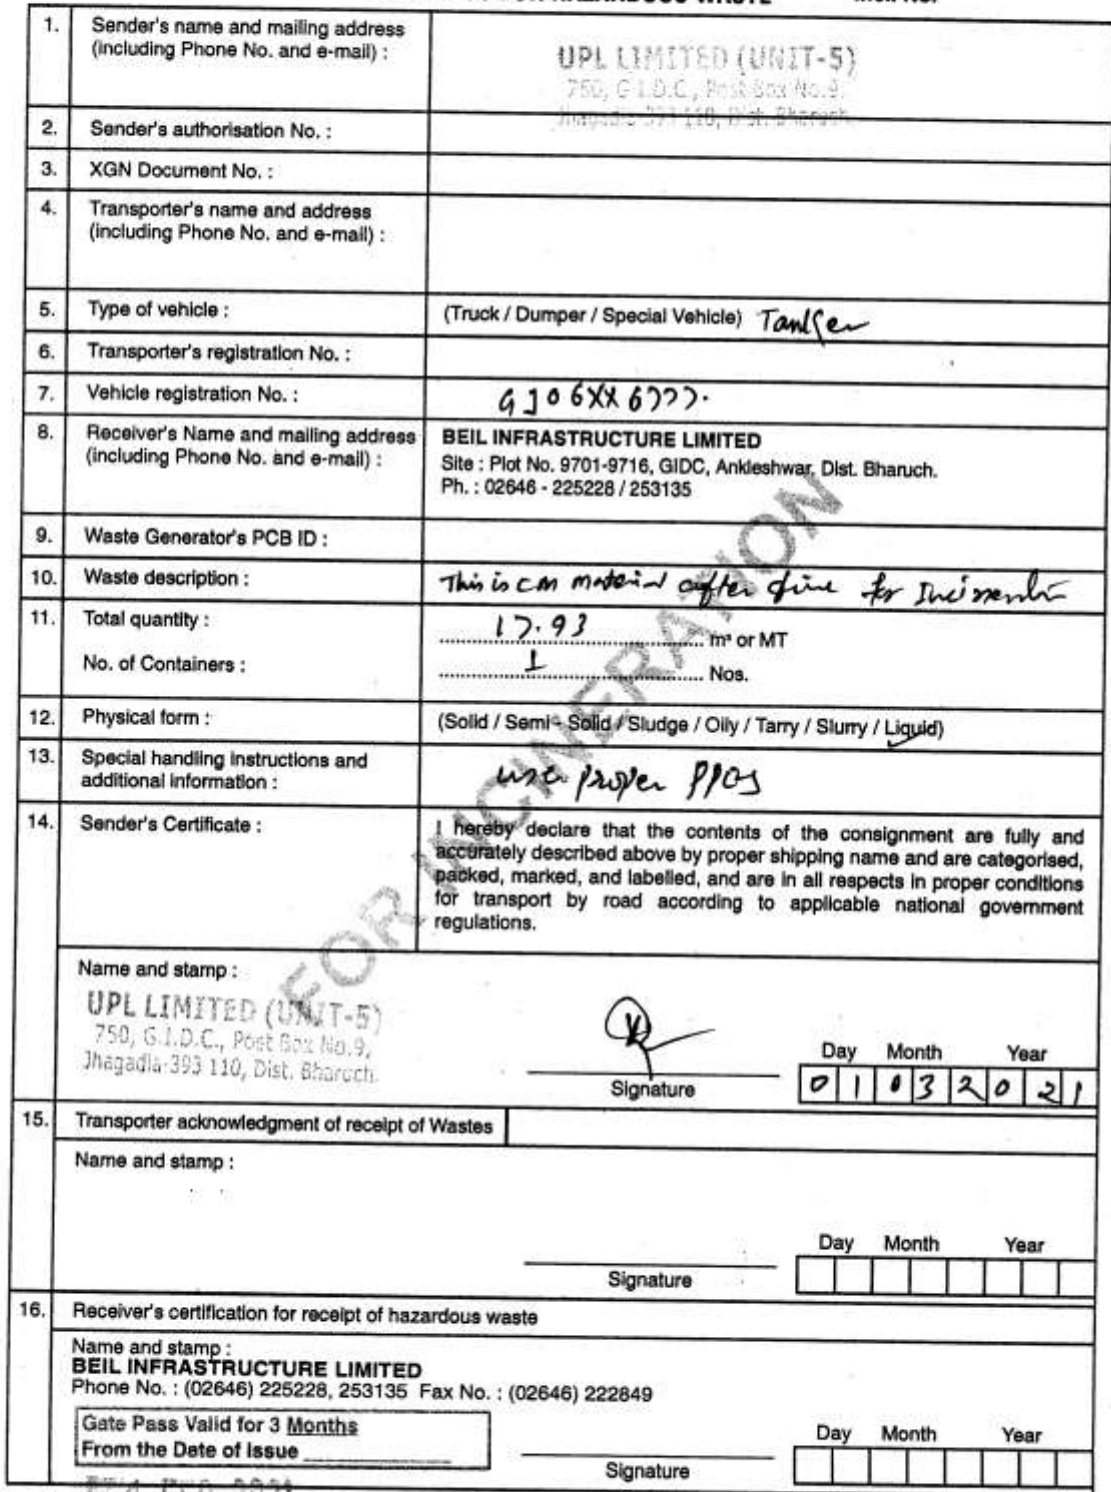 HAZARDOUS WASTE
1. Sender's name and mailing address
(including Phone No. and e-mail) :
UPL LIMITED (UNIT-5)
750, G.I.D.C., Post Box No.9,
Jhagadia-393 110, Dist. Bharuch.
2. Sender's authorisation No. :
3. XGN Document No. :
4. Transporter's name and address
(including Phone No. and e-mail) :
5. Type of vehicle : (Truck / Dumper / Special Vehicle) Tanker
6. Transporter's registration No. :
7. Vehicle registration No. : GJ06XX6777.
8. Receiver's Name and mailing address
(including Phone No. and e-mail) :
BEIL INFRASTRUCTURE LIMITED
Site : Plot No. 9701-9716, GIDC, Ankleshwar, Dist. Bharuch.
Ph. : 02646 - 225228 / 253135
9. Waste Generator's PCB ID :
10. Waste description : This is CM material after fire for
11. Total quantity : 17.93 m³ or MT
No. of Containers : 1 Nos.
12. Physical form : (Solid / Semi - Solid / Sludge / Oily / Tarry / Slurry / Liquid)
13. Special handling instructions and
additional information :
use proper PPEs
14. Sender's Certificate :
I hereby declare that the contents of the consignment are fully and
accurately described above by proper shipping name and are categorised,
packed, marked, and labelled, and are in all respects in proper conditions
for transport by road according to applicable national government
regulations.
FOR INCINERATION
Name and stamp :
UPL LIMITED (UNIT-5)
750, G.I.D.C., Post Box No.9,
Jhagadia-393 110, Dist. Bharuch.
Signature
Day Month Year
0 1 0 3 2 0 2 1
15. Transporter acknowledgment of receipt of Wastes
Name and stamp :
Day Month Year
Signature
16. Receiver's certification for receipt of hazardous waste
Name and stamp :
BEIL INFRASTRUCTURE LIMITED
Phone No. : (02646) 225228, 253135 Fax No. : (02646) 222849
Gate Pass Valid for 3 Months
From the Date of Issue
Day Month Year
Signature